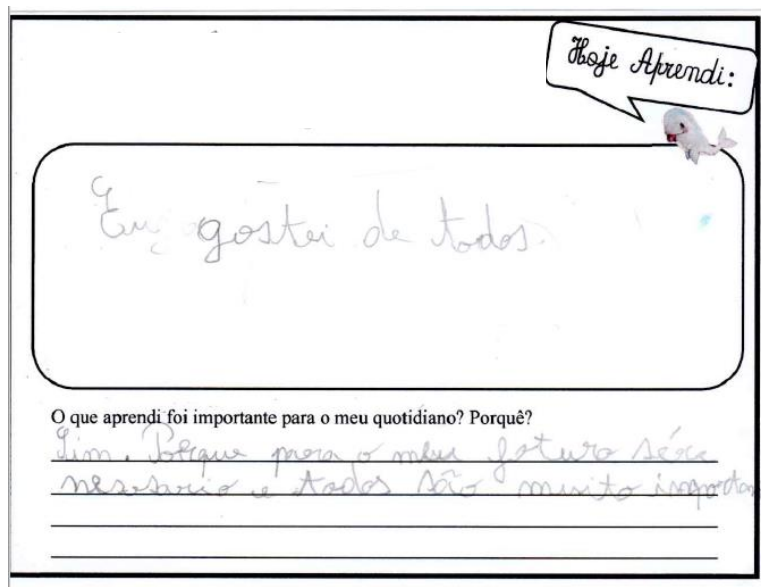 Hoje Aprendi:
Eu gostei de todos
O que aprendi foi importante para o meu quotidiano? Porquê?
Sim. Porque para o meu foturo séra
nezesario e todos são muito importan